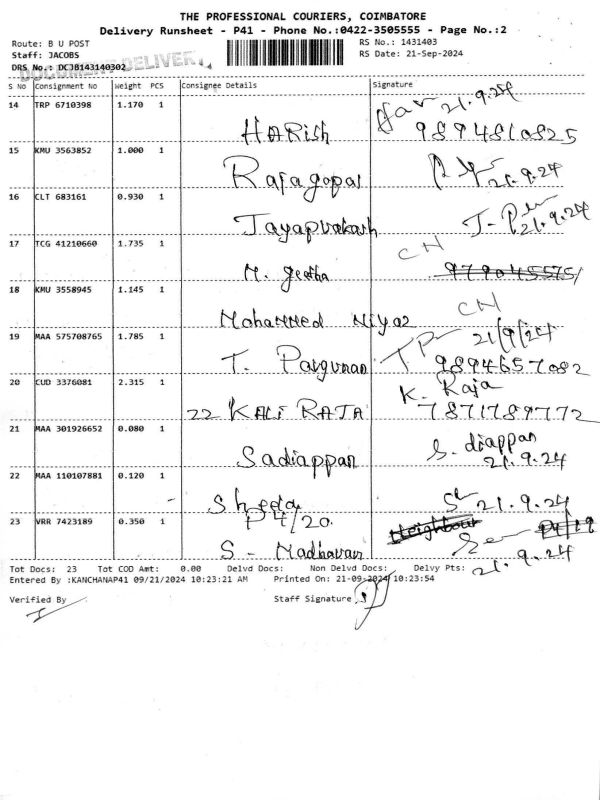 THE PROFESSIONAL COURIERS, COIMBATORE
Delivery Runsheet - P41 - Phone No.:0422-3505555 - Page No.:2
Route: B U POST RS No.: 1431403
Staff: JACOBS RS Date: 21-Sep-2024
DRS No.: DCJB143140302
S No Consignment No Weight PCS Consignee Details Signature
14 TRP 6710398 1.170 1 21.9.24
HARish 9894810825
15 KMU 3563852 1.000 1
Rajagopal 21.9.24
16 CLT 683161 0.930 1
Jayaprakash 21.9.24
17 TCG 41210660 1.735 1 CN
M. geetha
18 KMU 3558945 1.145 1 CN
Mohammed Niyaz
19 MAA 575708765 1.785 1 21/9/24
T. Paigunan 9894657082
20 CUD 3376081 2.315 1 K. Raja
22 KALI RAJA 7871789772
21 MAA 301926652 0.080 1 S. diappan
Sadiappan 21.9.24
22 MAA 110107881 0.120 1
Sheeda 21.9.24
P4/20.
23 VRR 7423189 0.350 1 Neighbour P4/19
S - Madhavan 21.9.24
Tot Docs: 23 Tot COD Amt: 0.00 Delvd Docs: Non Delvd Docs: Delvy Pts:
Entered By :KANCHANAP41 09/21/2024 10:23:21 AM Printed On: 21-09-2024 10:23:54
Verified By Staff Signature